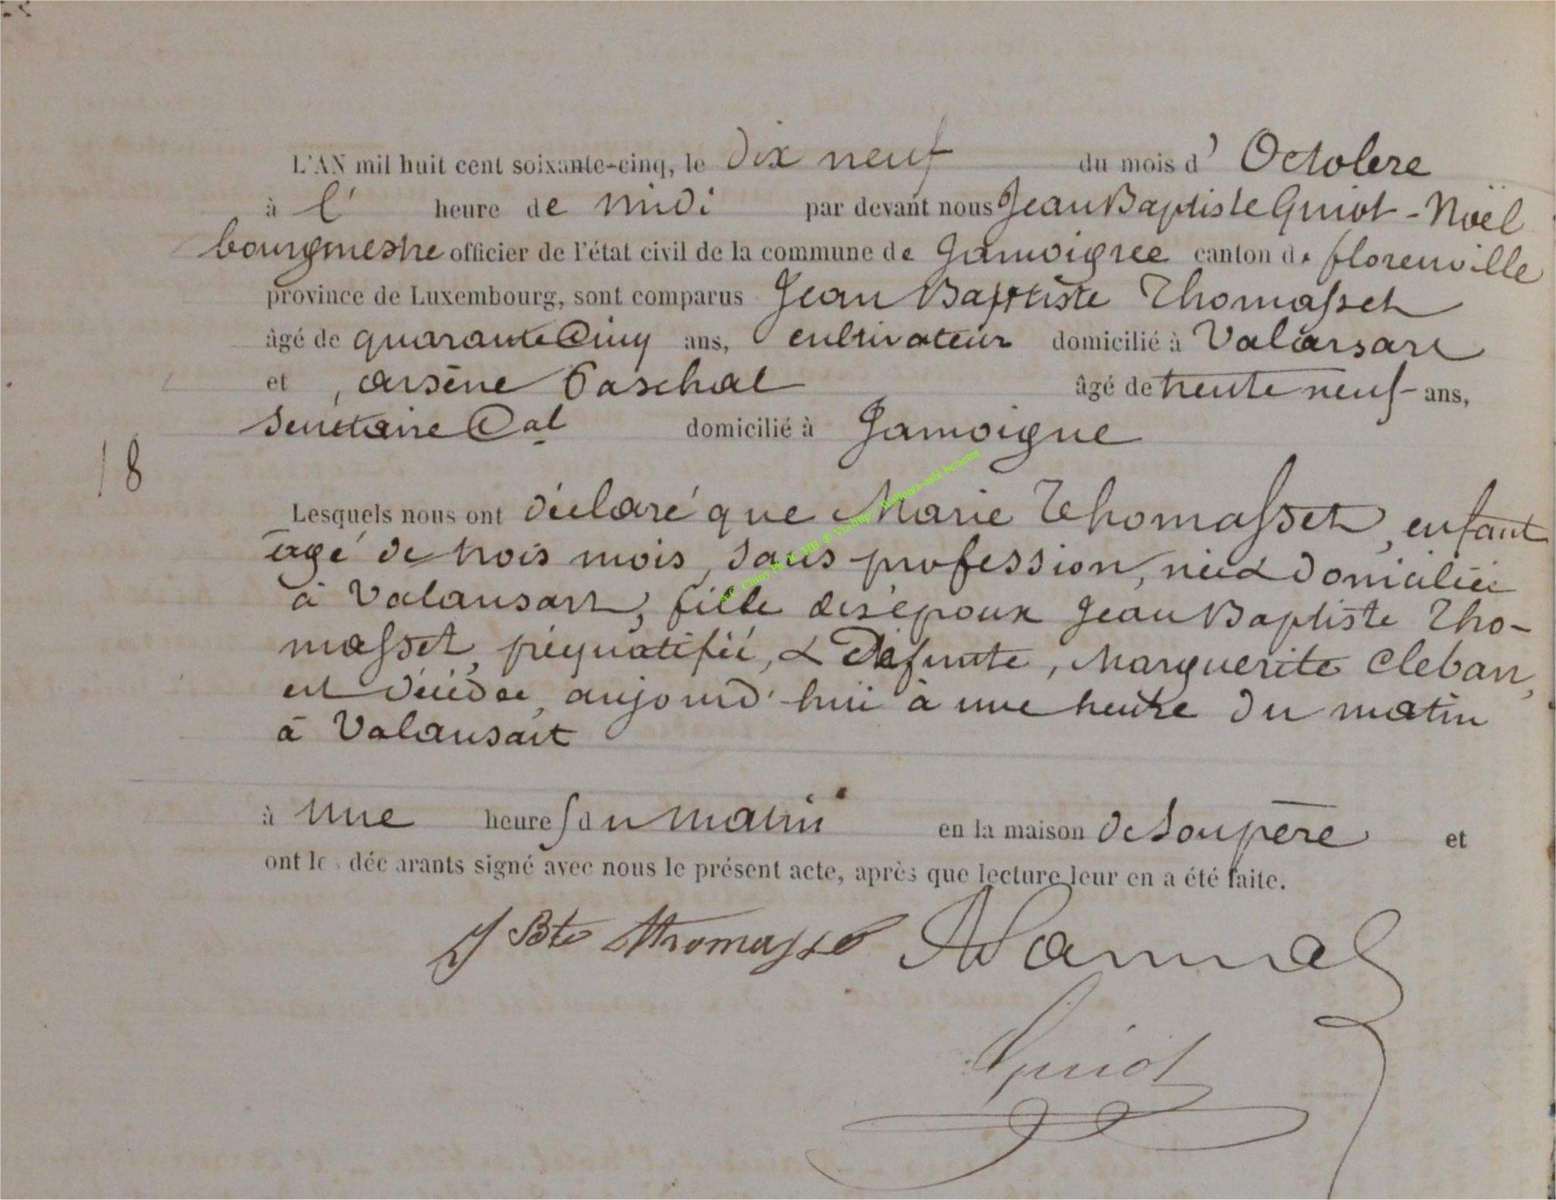 L'AN mil huit cent soixante-cinq, le dix neuf du mois d' Octobre
à l' heure de midi par devant nous Jean Baptiste Guiot-Noël
bourgmestre officier de l'état civil de la commune de Jamoigne canton de florenville
province de Luxembourg, sont comparus Jean Baptiste Thomasset
âgé de quarante Cinq ans, cultivateur domicilié à Valansart
et arsène Paschal âgé de trente neuf ans,
Secrétaire Cal domicilié à Jamoigne
18
Lesquels nous ont déclaré que Marie Thomasset, enfant
agé de trois mois, sans profession, née & domiciliée
à Valansart, fille des époux Jean Baptiste Tho-
masset, préqualifié, & Défunte, Marguerite Cleban,
est décédée, aujourd'hui à une heure du matin
à Valansart
à une heure du matin en la maison de son père et
ont les déclarants signé avec nous le présent acte, après que lecture leur en a été faite.
J Bte Thomasse
Guiot